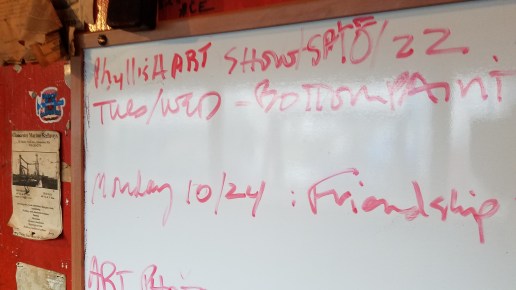 Phyllis ART SHOW SAT 10/22
TUES/WED - BOTTOM PAINT
Monday 10/24 : Friendship
ART